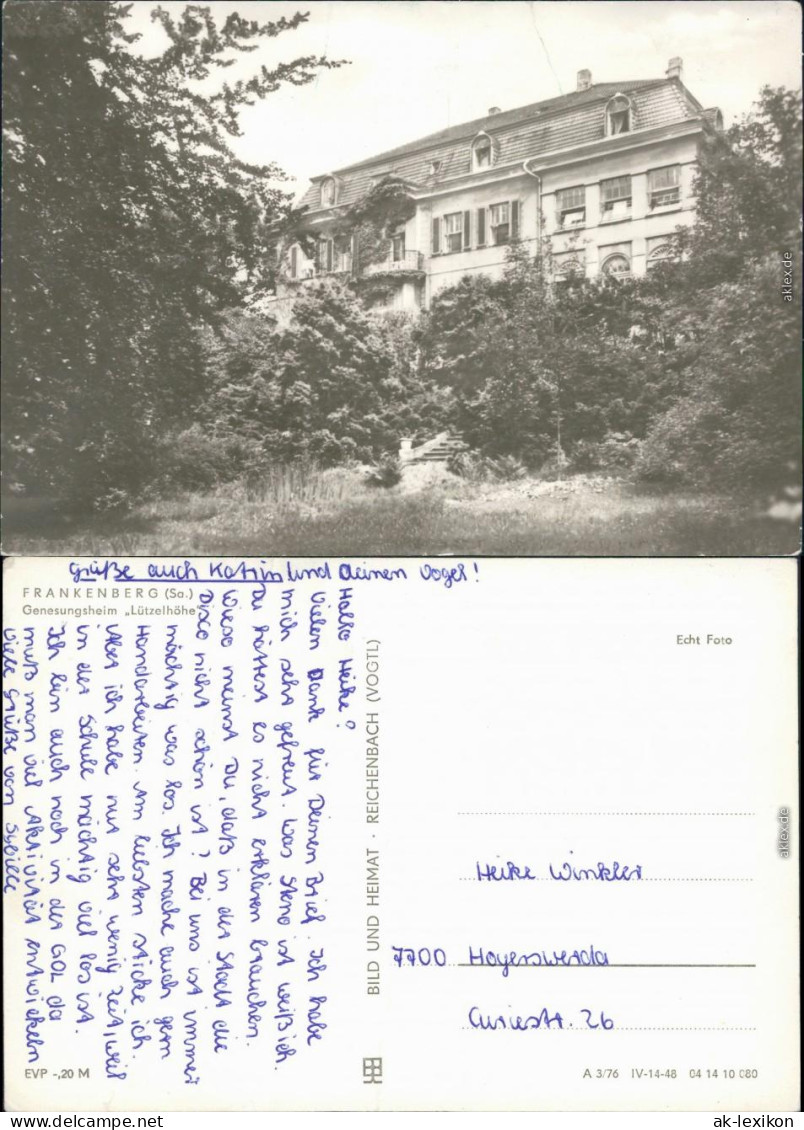 aklex.de
Grüße auch Katrin und Deinen Vogel!
FRANKENBERG (Sa.)
Genesungsheim „Lützelhöhe"
Hallo Heike!
Vielen Dank für Deinen Brief. Ich habe
mich sehr gefreut. Was Steno ist weiß ich.
Du hättest es nicht erklären brauchen.
Wieso meinst Du, daß in der Stadt die
Disco nicht schön ist? Bei uns ist immer
mächtig was los. Ich mache auch gern
Handarbeiten. Am liebsten sticke ich.
Aber ich habe nur sehr wenig Zeit, weil
in der Schule mächtig viel los ist.
Ich bin auch noch in der GOL da
muß man viel Aktivität entwickeln
Viele Grüße von Sybille
EVP -,20 M
BILD UND HEIMAT · REICHENBACH (VOGTL)
Echt Foto
Heike Winkler
7700 Hoyerswerda
Curiestr. 26
A 3/76 IV-14-48 04 14 10 080
aklex.de
www.ak-lexikon.de
ak-lexikon.com